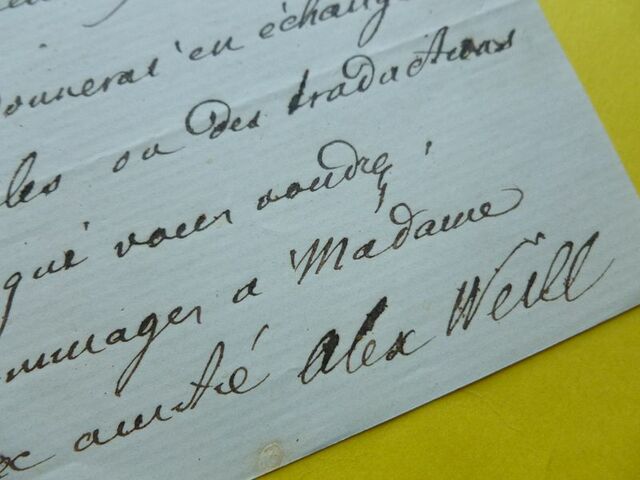 donneras en échange
les ou des traductions
qui vous voudrez
mmages a Madame
amitié Alex Weill